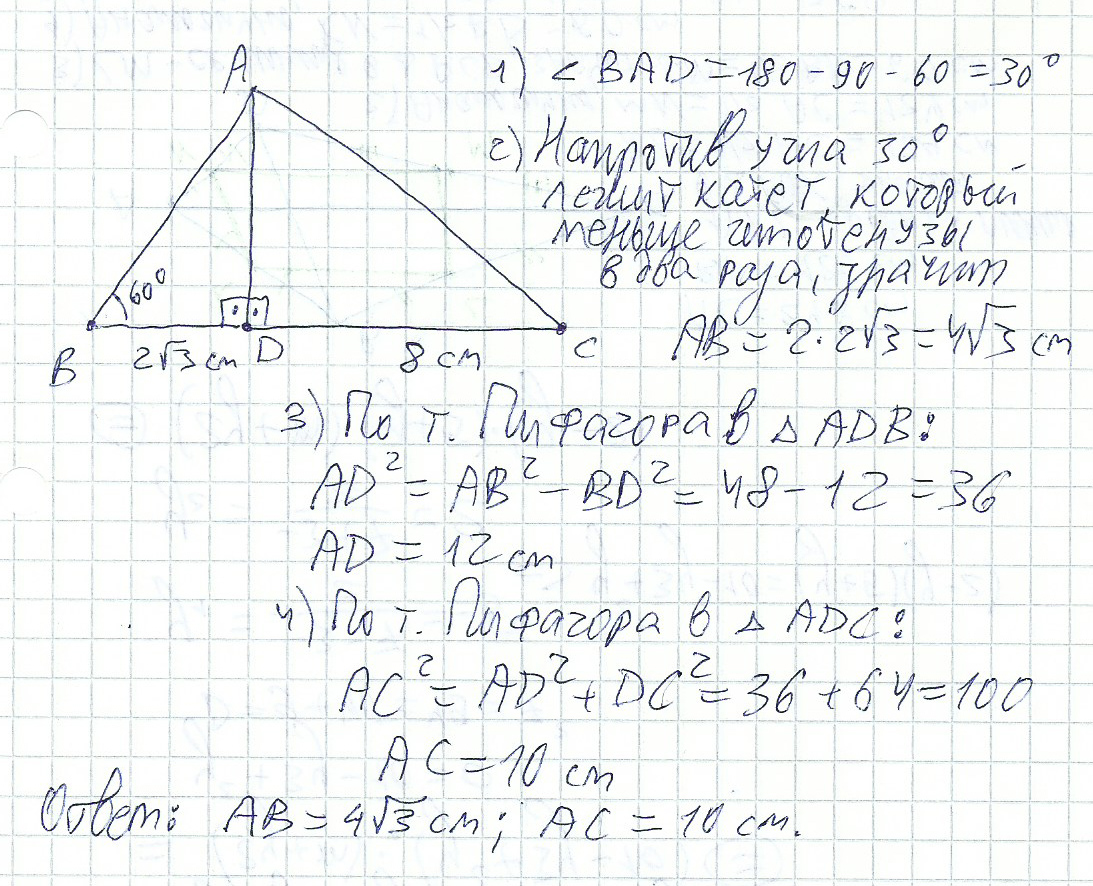 A
60°
B
2√3 см
D
8 см
C
1) < BAD = 180 - 90 - 60 = 30°
2) Напротив угла 30°
лежит катет, который
меньше гипотенузы
в два раза, значит
AB = 2 · 2√3 = 4√3 см
3) По т. Пифагора в △ ADB:
AD² = AB² - BD² = 48 - 12 = 36
AD = 12 см
4) По т. Пифагора в △ ADC:
AC² = AD² + DC² = 36 + 64 = 100
AC = 10 см
Ответ: AB = 4√3 см; AC = 10 см.